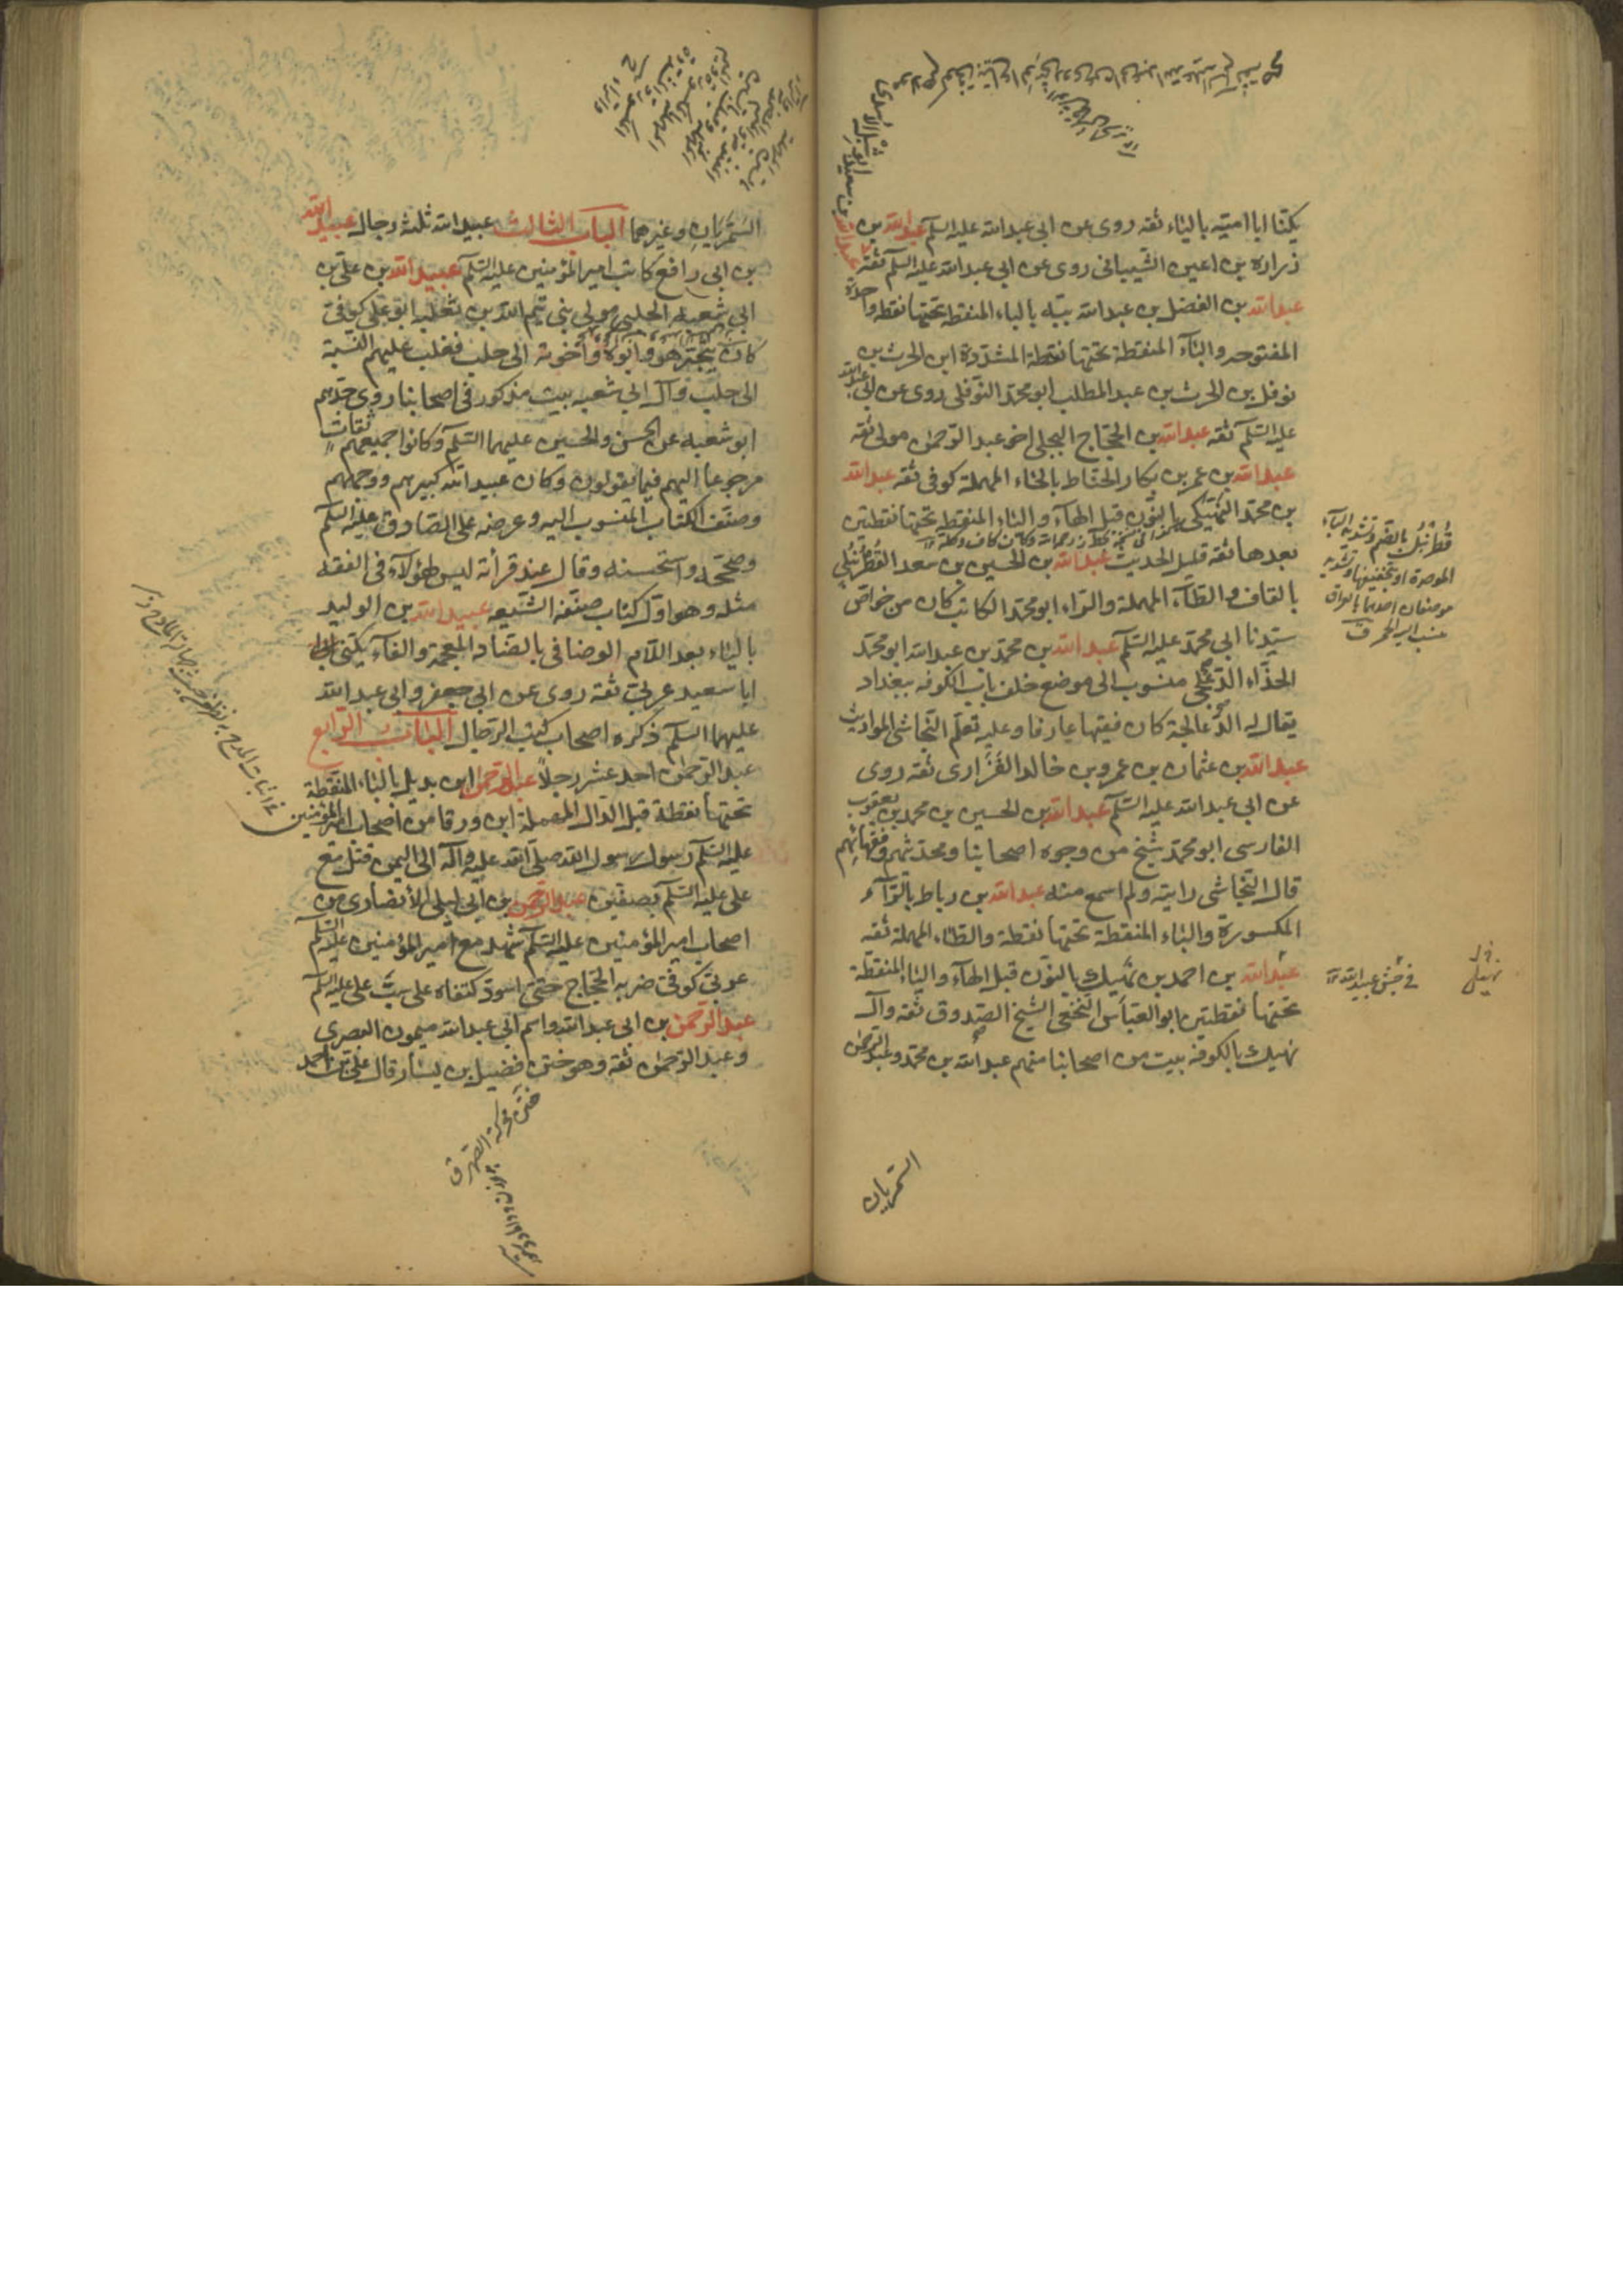 يكنا ابا امية بالياء ثقة روى عن ابى عبد الله عليه السلم عبد الله بن
زرارة بن اعين الشيبانى روى عن ابى عبد الله عليه السلم ثقة
عبد الله بن الفضل بن عبد الله ببه بالباء المنقطة تحتها نقطة واحدة
المفتوحة والباء المنقطة تحتها نقطة المشددة ابن الحرث بن
نوفل بن الحرث بن عبد المطلب ابو محمد النوفلى روى عن ابى عبد الله
عليه السلم ثقة عبد الله بن الحجاج البجلى اخو عبد الرحمن مولى ثقة
عبد الله بن عمر بن بكار الحناط بالحاء المهملة كوفى ثقة عبد الله
بن محمد النهيكى بالنون قبل الهاء والياء المنقطة تحتها نقطتين
بعدها ثقة قليل الحديث عبد الله بن الحسين بن سعد القطربلى
بالقاف والطاء المهملة والراء ابو محمد الكاتب كان من خواص
سيدنا ابى محمد عليه السلم عبد الله بن محمد بن عبد الله ابو محمد
الحذاء الدعلجى منسوب الى موضع خلف باب الكوفه ببغداد
يقال له الدعالجة كان فقيها عارفا وعليه تعلم النجاشى المواريث
عبد الله بن عثمان بن عمرو بن خالد الفزارى ثقة روى
عن ابى عبد الله عليه السلم عبد الله بن الحسين بن محمد بن يعقوب
الفارسى ابو محمد شيخ من وجوه اصحابنا ومحدثيهم وفقهائهم
قال النجاشى رايته ولم اسمع منه عبد الله بن رباط بالراء
المكسورة والباء المنقطة تحتها نقطة والطاء المهملة ثقه
عبد الله بن احمد بن نهيك بالنون قبل الهاء والياء المنقطة
تحتها نقطتين ابو العباس النخعى الشيخ الصدوق ثقة وآل
نهيك بالكوفه بيت من اصحابنا منهم عبد الله بن محمد وعبد الرحمن
السمريان
قطربل بالضم وتشديد الباء
الموحدة او بتخفيفها وتشديد
موضعان احدهما بالعراق
ينسب اليه الخمر ق
السمريان وغيرهما الباب الثالث عبيد الله ثلثة رجال عبيد الله
بن ابى رافع كاتب امير المؤمنين عليه السلم عبيد الله بن على بن
ابى شعبه الحلبى مولى بنى تيم اللات بن ثعلبه ابو على كوفى
كان يتجر هو وابوه واخوته الى حلب فغلب عليهم النسبة
الى حلب وآل ابى شعبه بيت مذكور فى اصحابنا روى جدهم
ابو شعبه عن الحسن والحسين عليهما السلم وكانوا جميعهم ثقات
مرجوعا اليهم فيما يقولون وكان عبيد الله كبيرهم ووجههم
وصنف الكتاب المنسوب اليه وعرضه على الصادق عليه السلم
وصححه واستحسنه وقال عند قرأته ليس لهؤلاء فى الفقه
مثله وهو اول كتاب صنفه الشيعه عبيد الله بن الوليد
بالياء بعد اللام الوصافى بالصاد المعجمة والفاء يكنى
ابا سعيد عربى ثقة روى عن ابى جعفر وابى عبد الله
عليهما السلم ذكره اصحاب كتب الرجال الباب الرابع
عبد الرحمن احد عشر رجلا عبد الرحمن ابن بديل بالباء المنقطة
تحتها نقطة قبل الدال المهملة ابن ورقا من اصحاب امير المؤمنين
عليه السلم رسول رسول الله صلى الله عليه وآله الى اليمن قتل مع
على عليه السلم بصفين عبد الرحمن بن ابى ليلى الانصارى من
اصحاب امير المؤمنين عليه السلم شهد مع امير المؤمنين عليه السلم
عربى كوفى ضربه الحجاج حتى اسود كتفاه على سب على عليه السلم
عبد الرحمن بن ابى عبد الله واسم ابى عبد الله ميمون البصرى
وعبد الرحمن ثقة وهو ختن فضيل بن يسار قال على بن احمد
ختن محركة الصهر ق